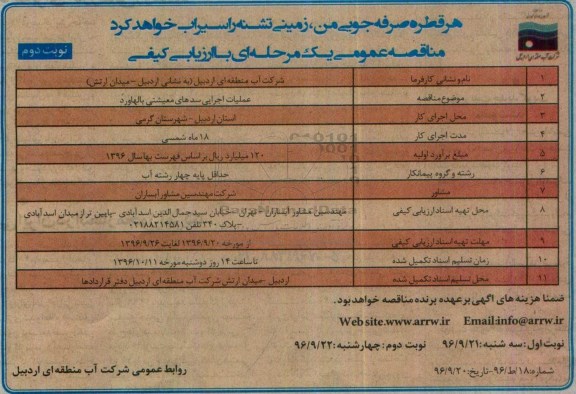 هر قطره صرفه جویی من، زمینی تشنه را سیراب خواهد کرد
مناقصه عمومی یک مرحله‌ای با ارزیابی کیفی
نوبت دوم
۱ نام و نشانی کارفرما شرکت آب منطقه‌ای اردبیل (به نشانی اردبیل - میدان ارتش)
۲ موضوع مناقصه عملیات اجرایی سدهای معیشتی بالهاورد
۳ محل اجرای کار استان اردبیل - شهرستان گرمی
۴ مدت اجرای کار ۱۸ ماه شمسی
۵ مبلغ برآورد اولیه ۱۲۰ میلیارد ریال بر اساس فهرست بها سال ۱۳۹۶
۶ رشته و گروه پیمانکار حداقل پایه چهار رشته آب
۷ مشاور شرکت مهندسین مشاور آبساران
۸ محل تهیه اسناد ارزیابی کیفی مهندسین مشاور آبساران - تهران - خیابان سید جمال الدین اسد آبادی - پایین تر از میدان اسد آبادی
- پلاک ۳۴۰ تلفن ۰۳۱۸۸۲۱۴۵۸۱
۹ مهلت تهیه اسناد ارزیابی کیفی از مورخه ۱۳۹۶/۹/۲۰ لغایت ۱۳۹۶/۹/۲۶
۱۰ زمان تسلیم اسناد تکمیل شده تا ساعت ۱۴ روز دوشنبه مورخه ۱۳۹۶/۱۰/۱۱
۱۱ محل تسلیم اسناد تکمیل شده اردبیل - میدان ارتش شرکت آب منطقه‌ای اردبیل دفتر قراردادها
ضمنا هزینه های آگهی بر عهده برنده مناقصه خواهد بود.
Web site.www.arrw.ir Email:info@arrw.ir
نوبت اول: سه شنبه: ۹۶/۹/۲۱ نوبت دوم: چهارشنبه: ۹۶/۹/۲۲
شماره: ۱۸/ط/۹۶ - تاریخ: ۹۶/۹/۲۰
روابط عمومی شرکت آب منطقه‌ای اردبیل